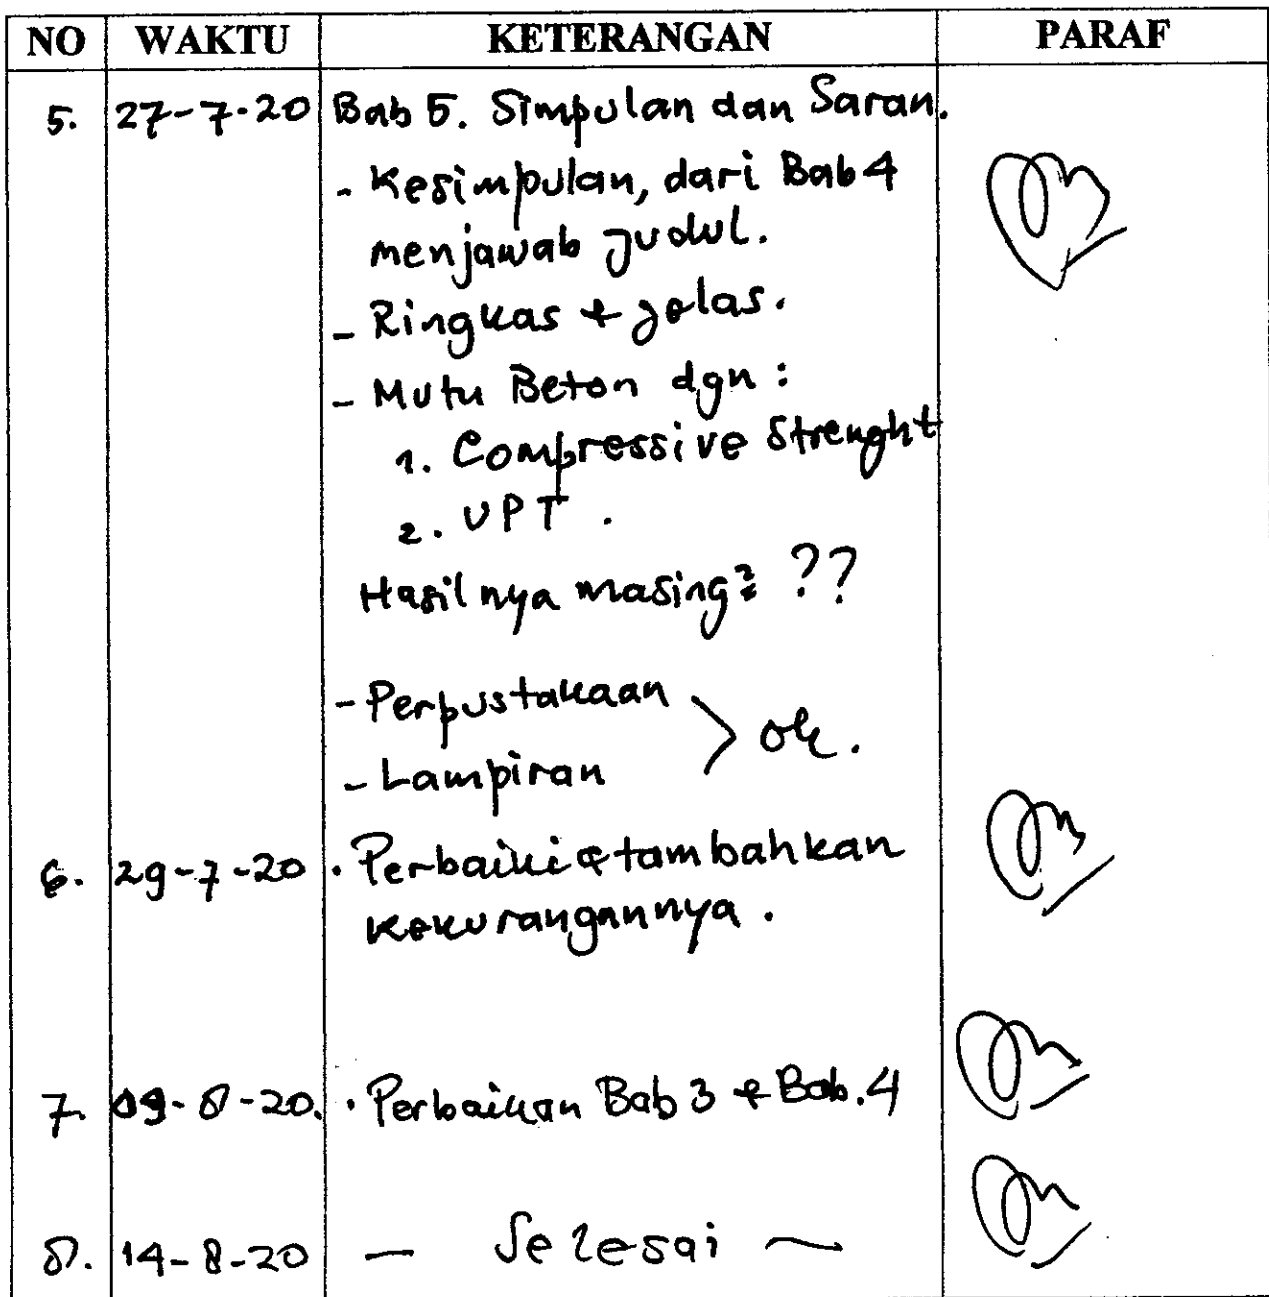 NO WAKTU KETERANGAN PARAF
5. 27-7-20 Bab 5. Simpulan dan Saran.
- Kesimpulan, dari Bab 4
menjawab judul.
- Ringkas & jelas.
- Mutu Beton dgn :
1. Compressive Strenght
2. UPT .
Hasilnya masing2 ??
- Perpustakaan
- Lampiran > ok.
6. 29-7-20 . Perbaiki & tambahkan
kekurangannya .
7. 09-8-20. . Perbaikan Bab 3 & Bab. 4
8. 14-8-20 — Selesai —